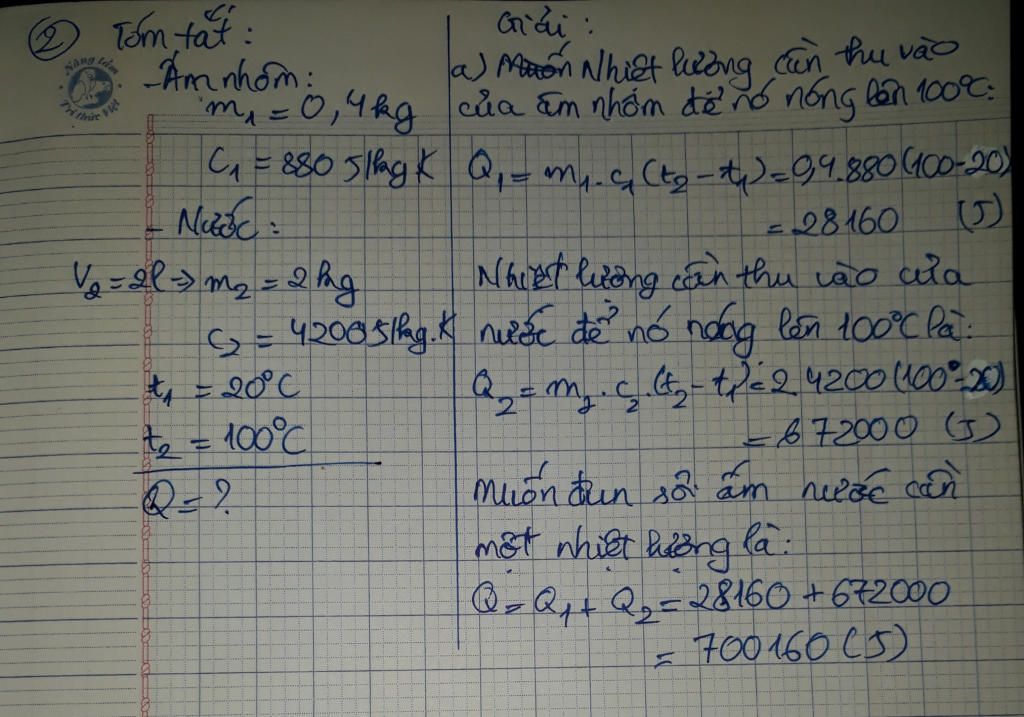 ② Tóm tắt:
- Ấm nhôm:
m₁ = 0,4kg
C₁ = 880 J/kgK
- Nước:
V₂ = 2l => m₂ = 2kg
C₂ = 4200J/kg.K
t₁ = 20°C
t₂ = 100°C
Q = ?
Giải:
a) Nhiệt lượng cần thu vào
của ấm nhôm để nó nóng lên 100°C:
Q₁ = m₁.c₁(t₂-t₁) = 0,4.880(100-20)
= 28160 (J)
Nhiệt lượng cần thu vào của
nước để nó nóng lên 100°C là:
Q₂ = m₂.c₂.(t₂-t₁) = 2 4200(100°-20)
= 672000 (J)
Muốn đun sôi ấm nước cần
một nhiệt lượng là:
Q = Q₁ + Q₂ = 28160 + 672000
= 700160 (J)
Nâng tầm
Tri thức Việt